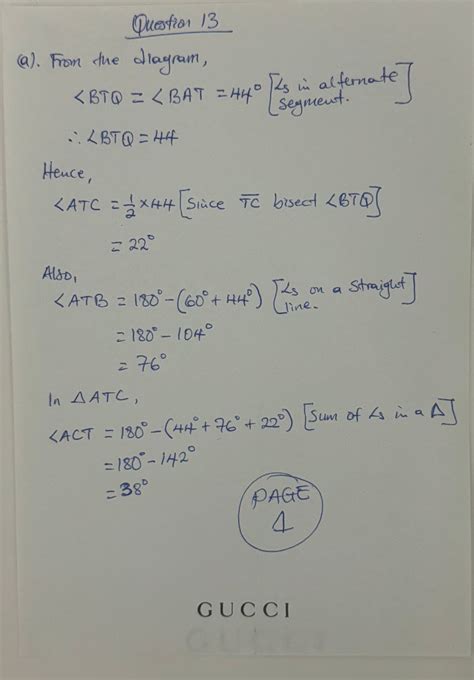 Question 13
(a). From the diagram,
∠BTQ = ∠BAT = 44° [∠s in alternate segment.]
∴ ∠BTQ = 44
Hence,
∠ATC = 1/2 × 44 [Since T̅C̅ bisect ∠BTQ]
= 22°
Also,
∠ATB = 180° - (60° + 44°) [∠s on a straight line.]
= 180° - 104°
= 76°
In △ATC,
∠ACT = 180° - (44° + 76° + 22°) [Sum of ∠s in a △]
= 180° - 142°
= 38°
PAGE
1
GUCCI